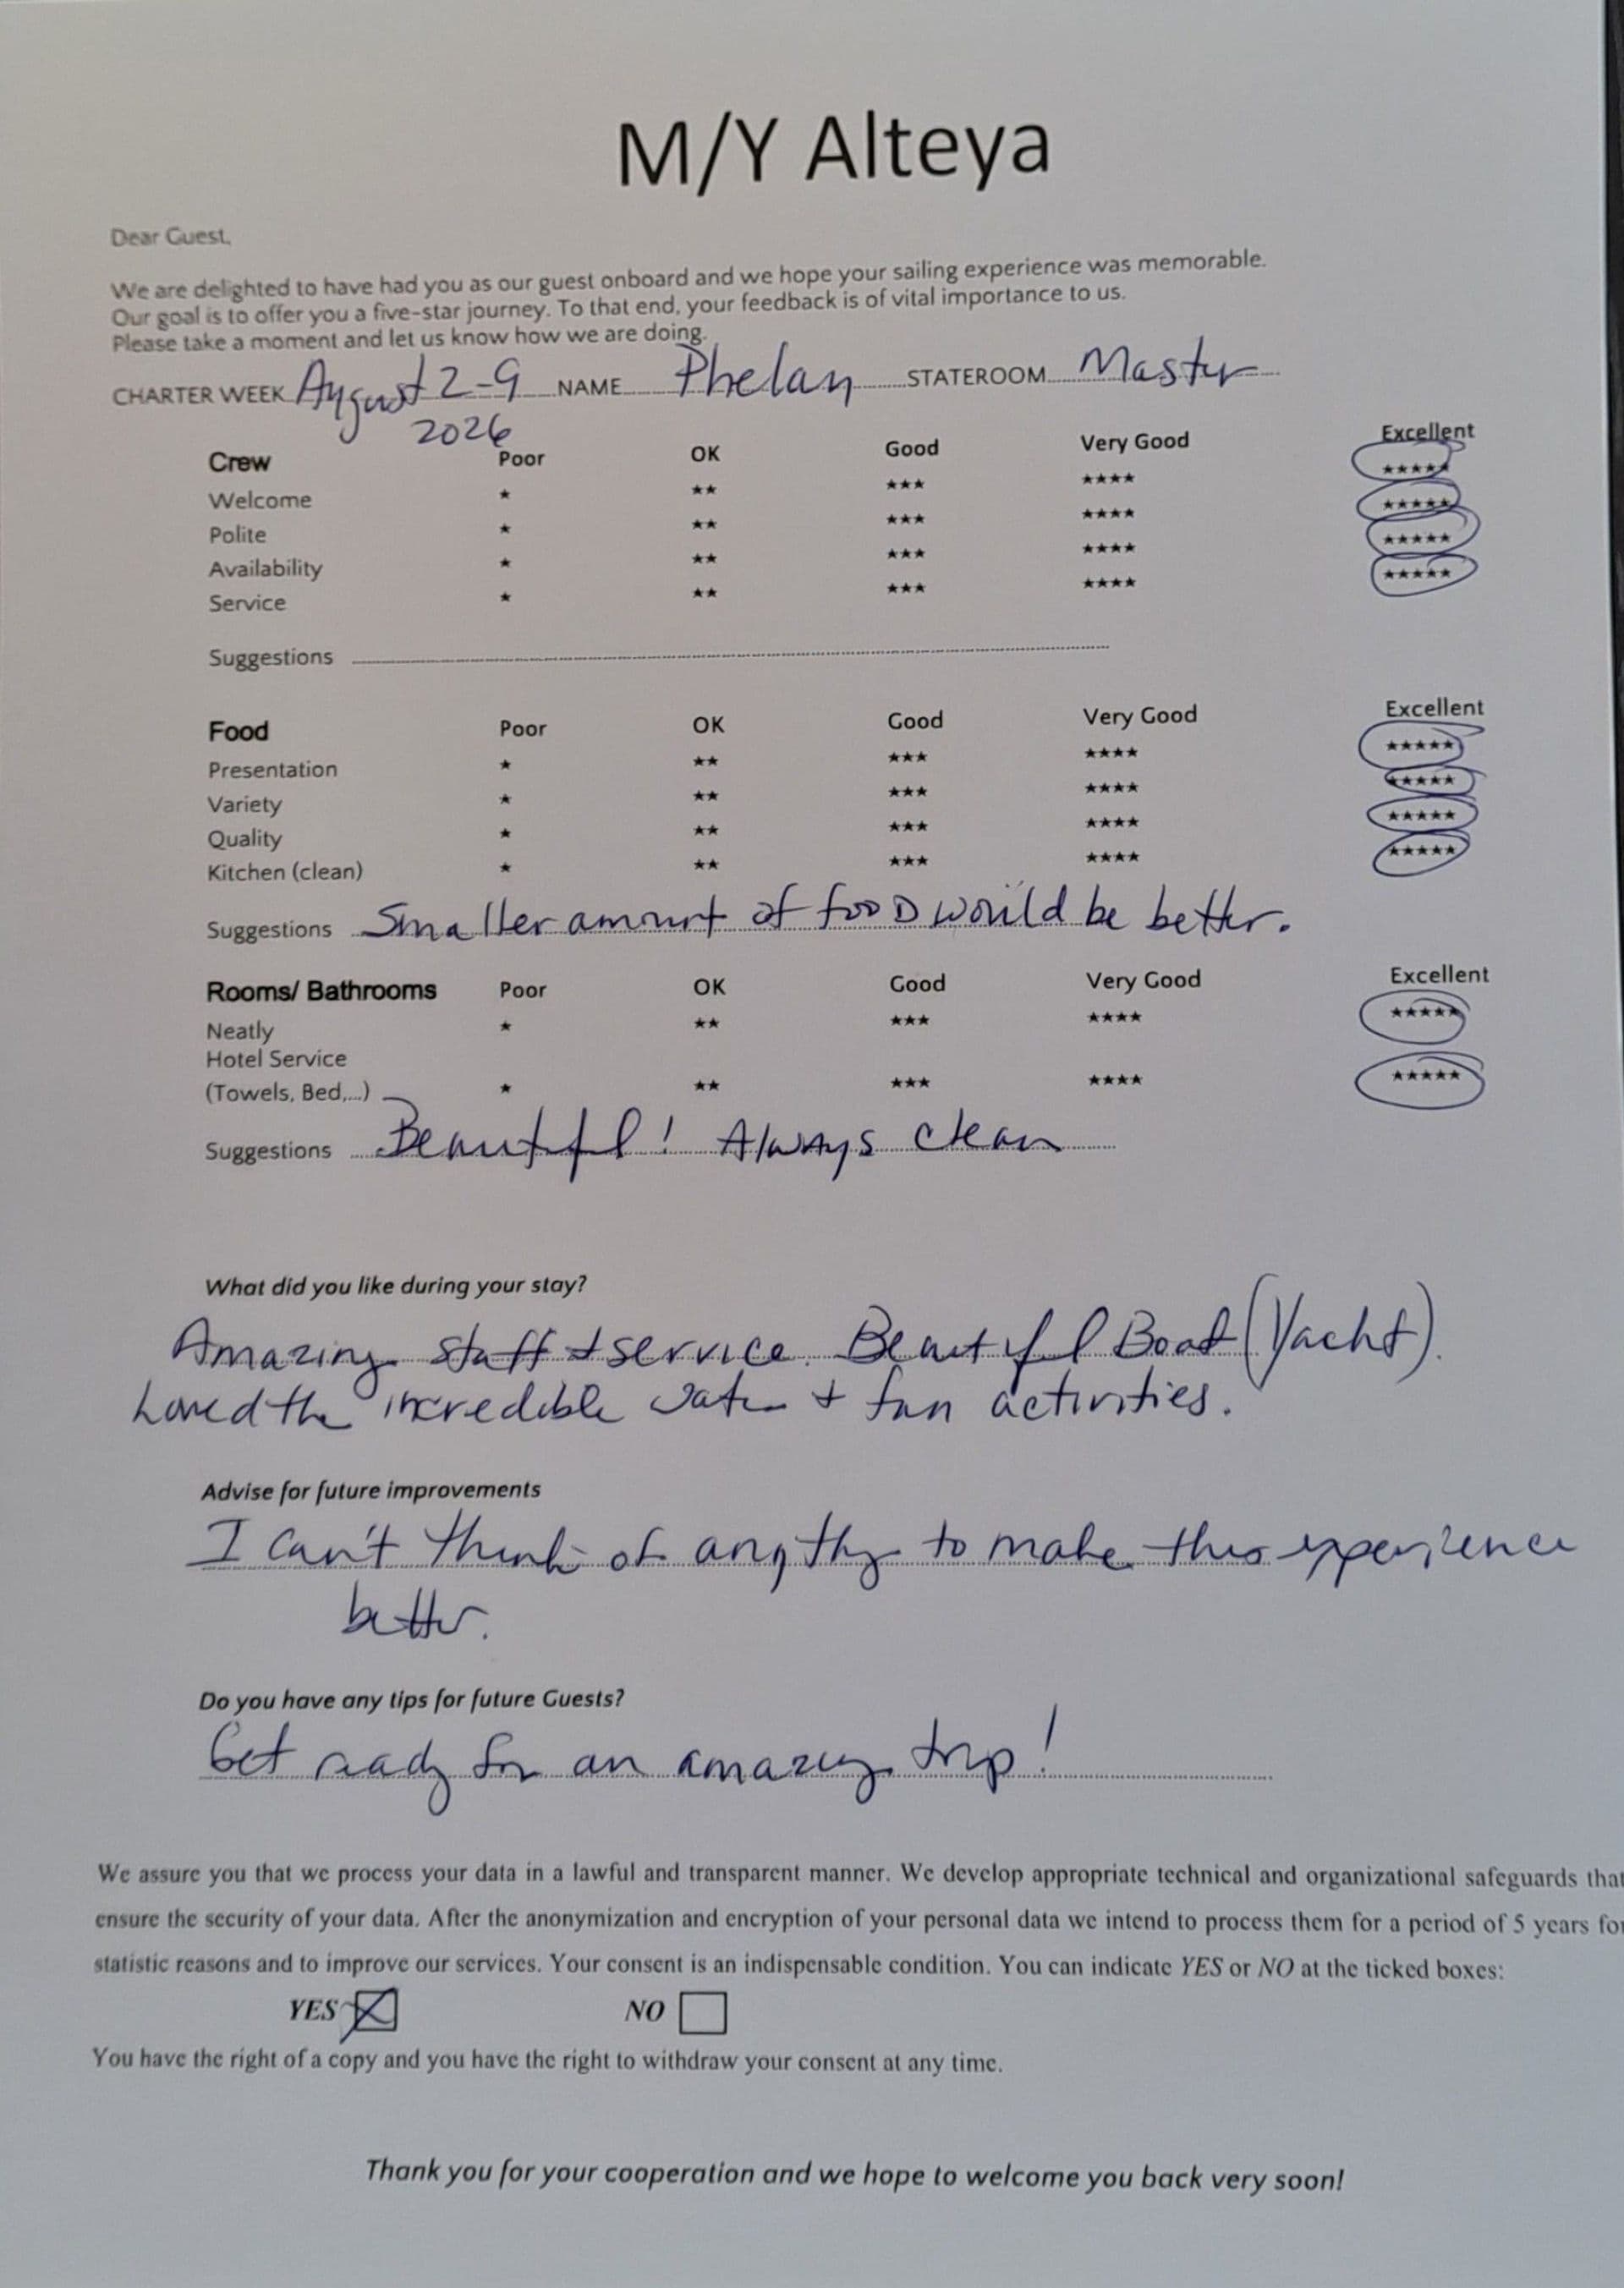 M/Y Alteya
Dear Guest,
We are delighted to have had you as our guest onboard and we hope your sailing experience was memorable.
Our goal is to offer you a five-star journey. To that end, your feedback is of vital importance to us.
Please take a moment and let us know how we are doing.
CHARTER WEEK August 2-9 NAME Phelan STATEROOM Master
2026
Crew Poor OK Good Very Good Excellent
Welcome ★ ★★ ★★★ ★★★★ ★★★★★
Polite ★ ★★ ★★★ ★★★★ ★★★★★
Availability ★ ★★ ★★★ ★★★★ ★★★★★
Service ★ ★★ ★★★ ★★★★ ★★★★★
Suggestions
Food Poor OK Good Very Good Excellent
Presentation ★ ★★ ★★★ ★★★★ ★★★★★
Variety ★ ★★ ★★★ ★★★★ ★★★★★
Quality ★ ★★ ★★★ ★★★★ ★★★★★
Kitchen (clean) ★ ★★ ★★★ ★★★★ ★★★★★
Suggestions Smaller amount of fooD would be better.
Rooms/ Bathrooms Poor OK Good Very Good Excellent
Neatly ★ ★★ ★★★ ★★★★ ★★★★★
Hotel Service
(Towels, Bed,...) ★ ★★ ★★★ ★★★★ ★★★★★
Suggestions Beautiful! Always clean
What did you like during your stay?
Amazing staff + service. Beautiful Boat (Yacht).
Loved the incredible water + fun activities.
Advise for future improvements
I can't think of anything to make this experience
better.
Do you have any tips for future Guests?
Get ready for an amazing trip!
We assure you that we process your data in a lawful and transparent manner. We develop appropriate technical and organizational safeguards that
ensure the security of your data. After the anonymization and encryption of your personal data we intend to process them for a period of 5 years for
statistic reasons and to improve our services. Your consent is an indispensable condition. You can indicate YES or NO at the ticked boxes:
YES ☒ NO ☐
You have the right of a copy and you have the right to withdraw your consent at any time.
Thank you for your cooperation and we hope to welcome you back very soon!